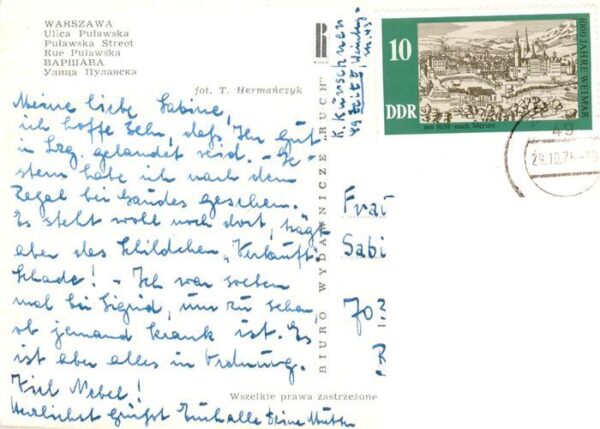 WARSZAWA
Ulica Puławska
Puławska Street
Rue Puławska
ВАРШАВА
Улица Пулавска
fot. T. Hermańczyk
Meine liebe Sabine,
ich hoffe sehr, daß Ihr gut
in Lzg. gelandet seid. – Ge-
stern habe ich nach dem
Regal bei Gaudes gesehen.
Es steht wohl noch dort, trägt
aber das Schildchen "Verkauft".
Schade! – Ich war soeben
mal bei Sigrid, um zu sehen,
ob jemand krank ist. Es
ist aber alles in Ordnung.
Viel Nebel!
Herzlichst grüßt Euch alle Deine Mutti
Wszelkie prawa zastrzeżone
BIURO WYDAWNICZE "RUCH"
RUCH
K. Kürschner
49 Zeitz
10
DDR
1000 JAHRE WEIMAR
um 1650 · nach Merian
49
29.10.76-13
Frau
Sabi
703